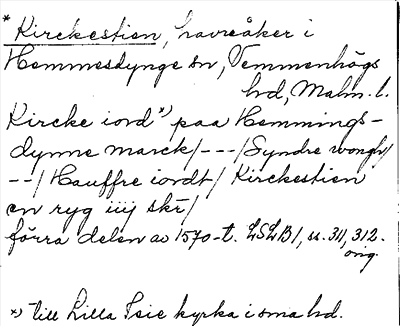 * Kirckestien, havreåker i
Hemmesdynge sn, Vemmenhögs
hd, Malm. l.
Kircke iord *) paa Hemmings-
dynne marck/---/Syndre wongh/
--/ Hauffre iordt/ Kirckestien
en ryg iiij skr/
förra delen av 1570-t. LSLB1, ss. 311, 312.
orig.
*) till Lilla Isie kyrka i sma hd.